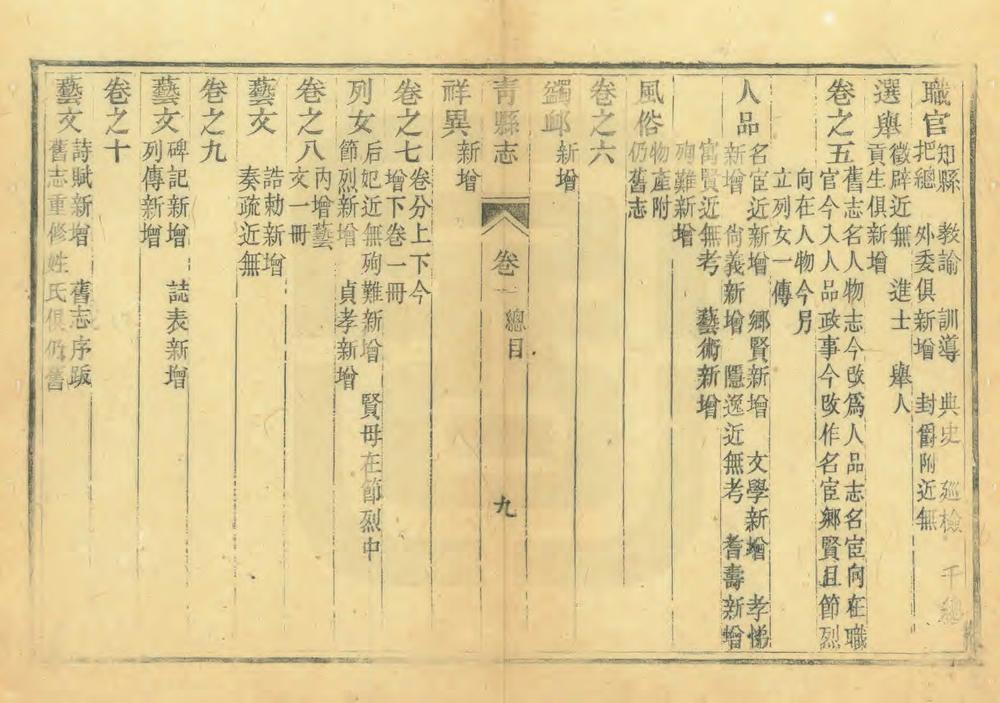 職官知縣 教諭 訓導 典史 巡檢 千總
把總 外委俱新增 封爵附近無
選舉徵辟近無 進士 舉人
貢生俱新增
卷之五舊志名人物志今改爲人品志名宦向在職
官今入人品政事今改作名宦鄉賢且節烈
向在人物今另
立列女一傳
人品名宦近新增 鄉賢新增 文學新增 孝悌
新增 尙義新增 隱逸近無考 耆壽新增
寓賢近無考 藝術新增
殉難新增
風俗物產附
仍舊志
卷之六
蠲卹新增
青縣志 卷一 總目 九
祥異新增
卷之七卷分上下今
增下卷一冊
列女后妃近無殉難新增 賢母在節烈中
節烈新增 貞孝新增
卷之八內增藝
文一冊
藝文誥勅新增
奏疏近無
卷之九
藝文碑記新增 誌表新增
列傳新增
卷之十
藝文詩賦新增 舊志序跋
舊志重修姓氏俱仍舊